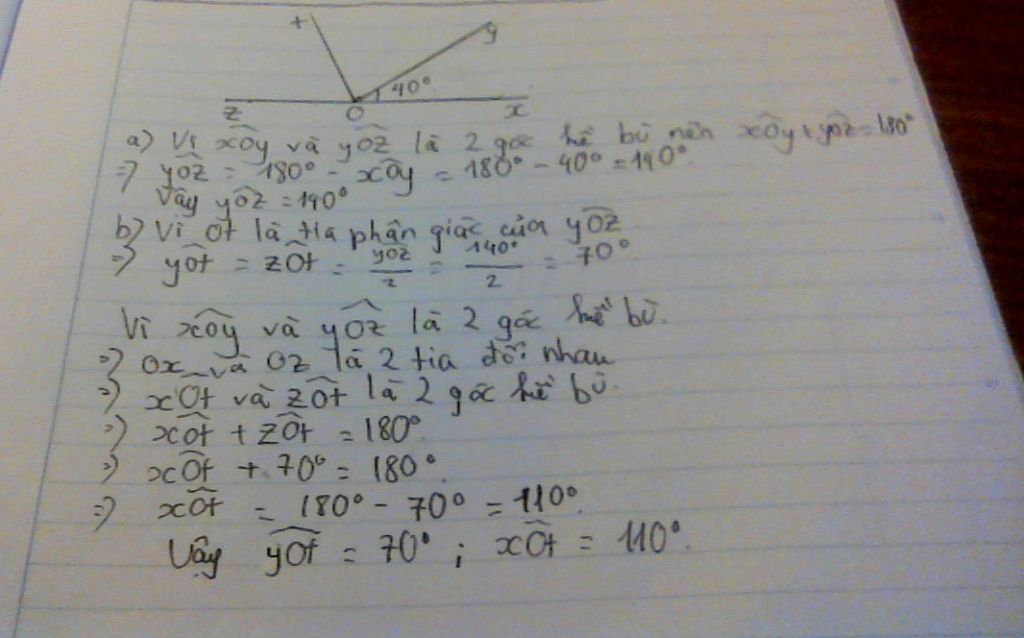 t
y
40°
z O x
a) Vì xÔy và yÔz là 2 góc kề bù nên xÔy + yÔz = 180°
=> yÔz = 180° - xÔy = 180° - 40° = 140°
Vậy yÔz = 140°
b) Vì Ot là tia phân giác của yÔz
=> yÔt = zÔt = yÔz/2 = 140°/2 = 70°
Vì xÔy và yÔz là 2 góc kề bù.
=> Ox và Oz là 2 tia đối nhau
=> xÔt và zÔt là 2 góc kề bù.
=> xÔt + zÔt = 180°
=> xÔt + 70° = 180°
=> xÔt = 180° - 70° = 110°
Vậy yÔt = 70° ; xÔt = 110°.